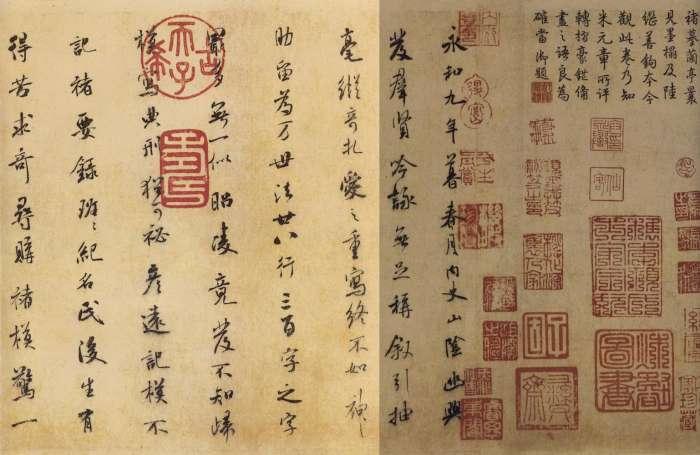 褚摹蘭亭業
見墨榻及陸
繼善鉤本今
觀此卷乃知
米元章所評
轉摺豪鋩備
盡之語良為
確當御題
永和九年暮春月內史山陰幽興
發羣賢吟詠無足稱叙引抽
毫縱奇札愛之重寫終不如神
助留為万世法廿八行三百字之字
最多無一似昭陵竟發不知歸
模寫典刑猶可秘彥遠記模不
記褚要錄班〻紀名氏後生有
得苦求奇尋購褚模驚一
古希天子